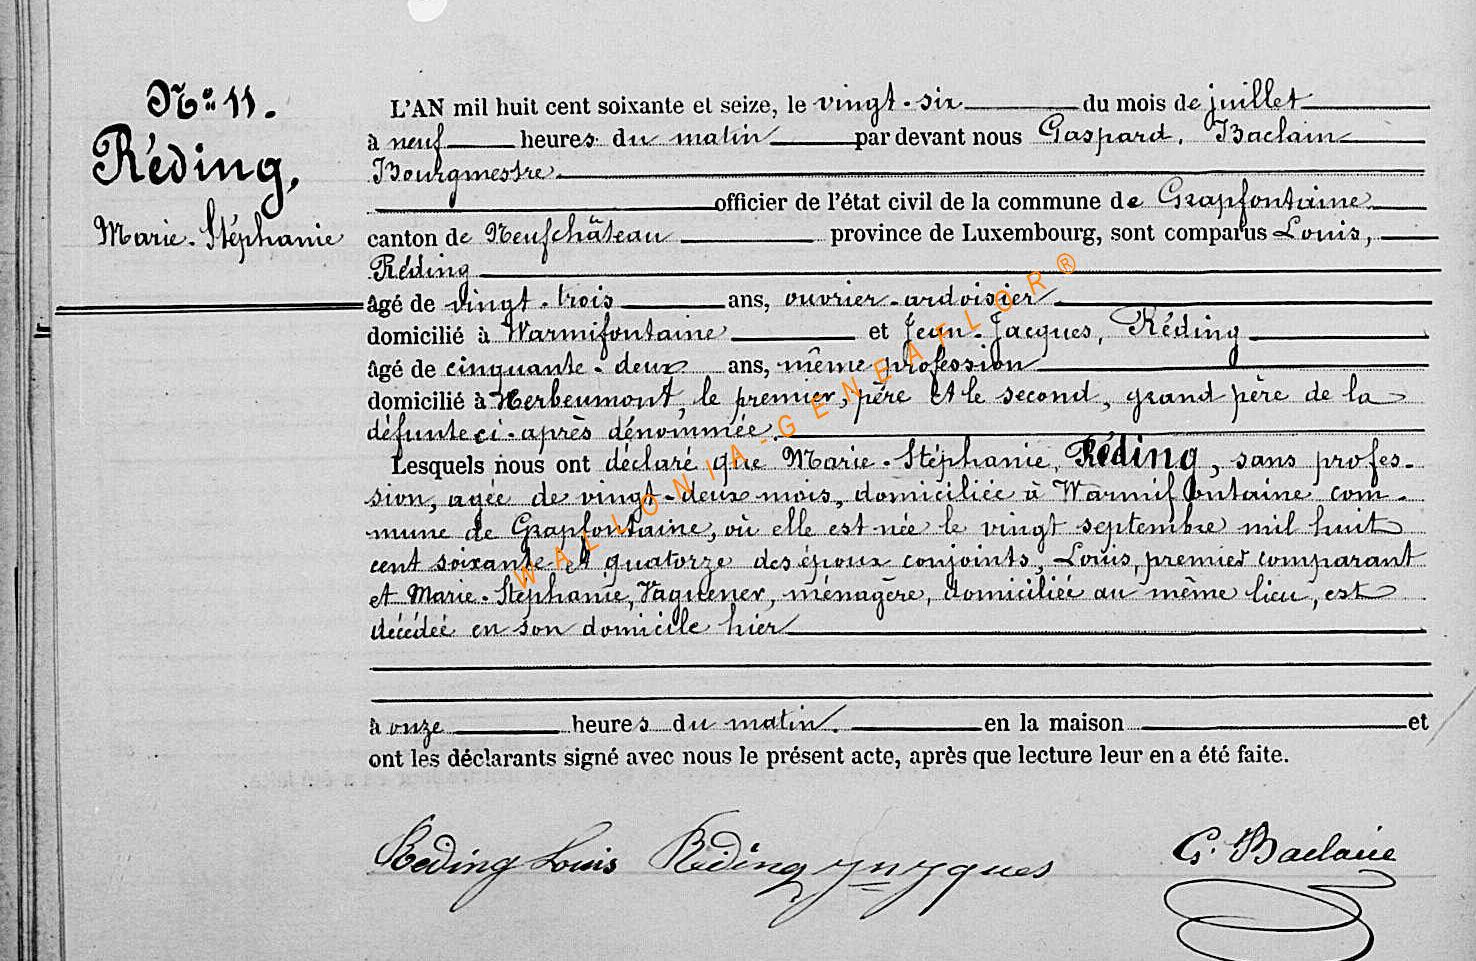 N° 11.
Réding,
Marie-Stéphanie
L'AN mil huit cent soixante et seize, le vingt-six du mois de juillet
à neuf heures du matin par devant nous Gaspard, Baclain
Bourgmestre
officier de l'état civil de la commune de Grapfontaine
canton de Neufchâteau province de Luxembourg, sont comparus Louis,
Réding
âgé de vingt-trois ans, ouvrier-ardoisier
domicilié à Warmifontaine et Jean-Jacques, Réding
âgé de cinquante-deux ans, même profession
domicilié à Herbeumont, le premier, père et le second, grand père de la
défunte ci-après dénommée.
Lesquels nous ont déclaré que Marie-Stéphanie, Réding, sans profes-
sion, agée de vingt-deux mois, domiciliée à Warmifontaine com-
mune de Grapfontaine, où elle est née le vingt septembre mil huit
cent soixante et quatorze des époux conjoints, Louis, premier comparant
et Marie-Stéphanie, Vaguener, ménagère, domiciliée au même lieu, est
décédée en son domicile hier
à onze heures du matin. en la maison et
ont les déclarants signé avec nous le présent acte, après que lecture leur en a été faite.
Réding Louis Réding Jn Jques G. Baclain
WALLONIA-GENEAFLOR®